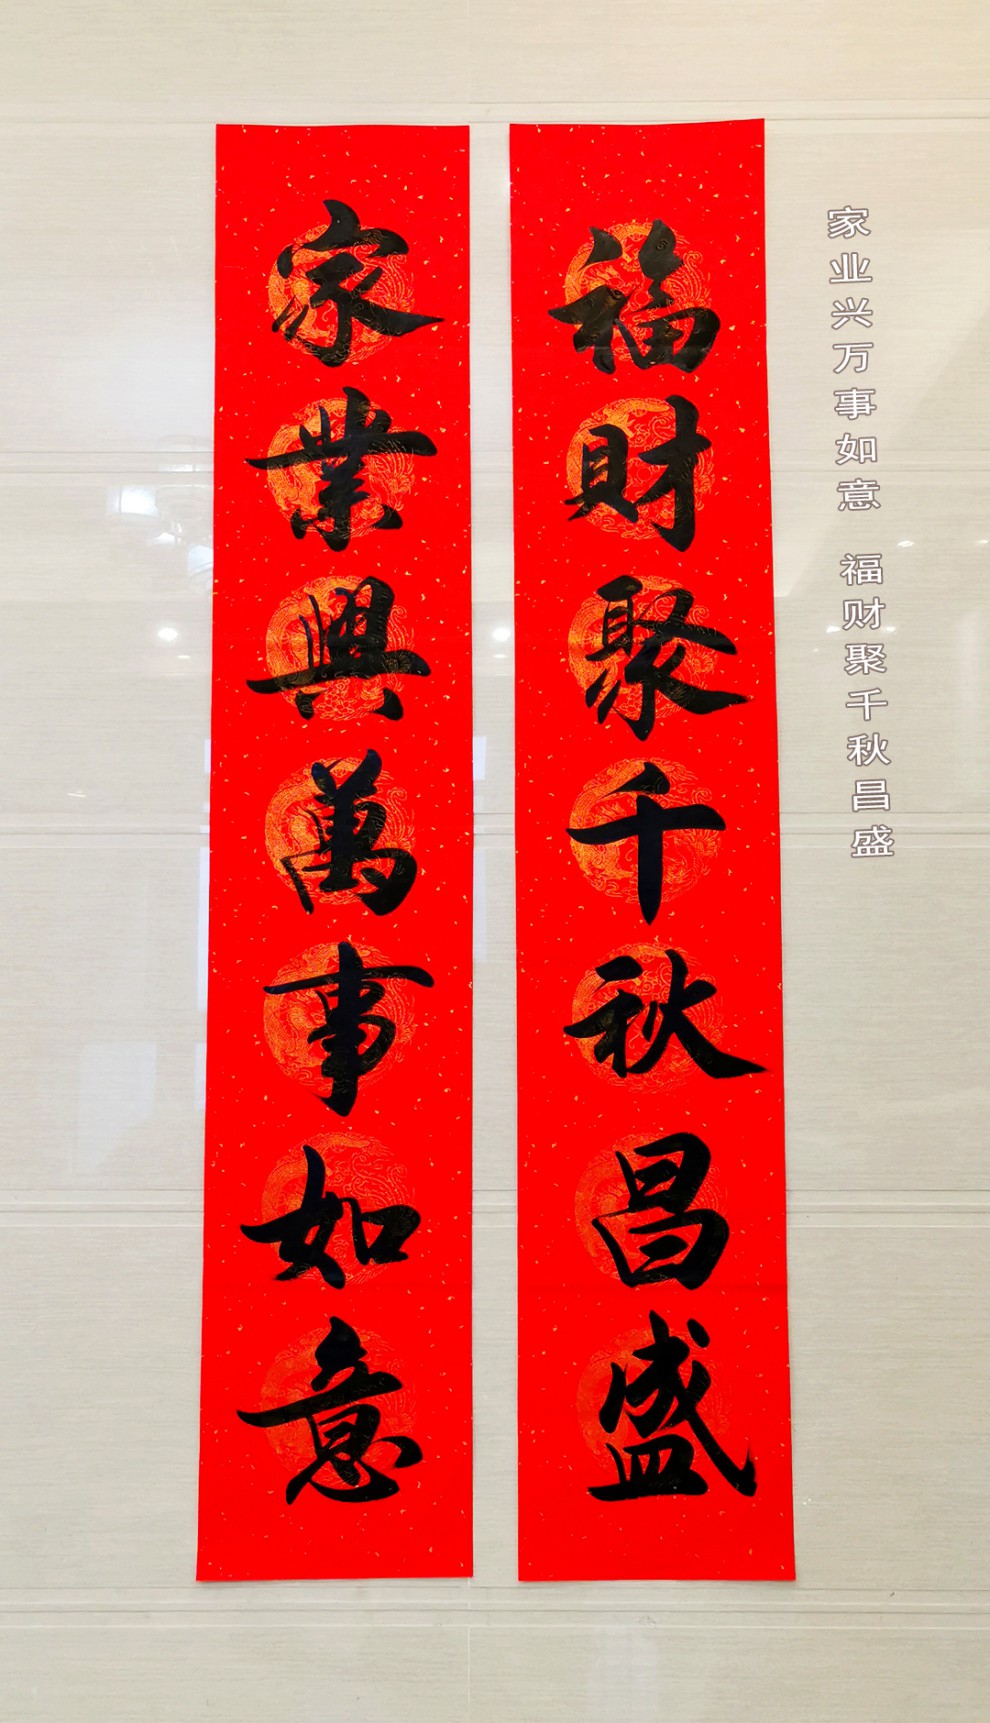 家業興萬事如意
福財聚千秋昌盛
家业兴万事如意 福财聚千秋昌盛